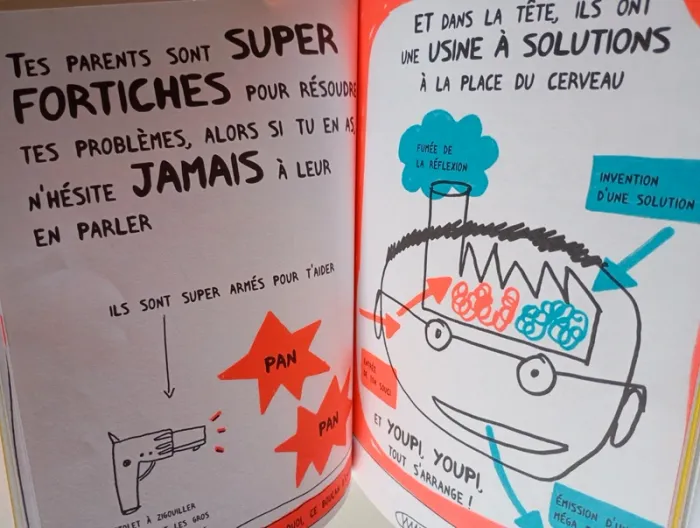 TES PARENTS SONT SUPER
FORTICHES POUR RÉSOUDRE
TES PROBLÈMES, ALORS SI TU EN AS,
N'HÉSITE JAMAIS À LEUR
EN PARLER
ILS SONT SUPER ARMÉS POUR T'AIDER
PAN
PAN
À ZIGOUILLER
LES GROS
CE
ET DANS LA TÊTE, ILS ONT
UNE USINE À SOLUTIONS
À LA PLACE DU CERVEAU
FUMÉE DE
LA RÉFLEXION
INVENTION
D'UNE SOLUTION
ENTRÉE
DE TON SOUCI
ET YOUPI, YOUPI,
TOUT S'ARRANGE !
ÉMISSION
MÉGA